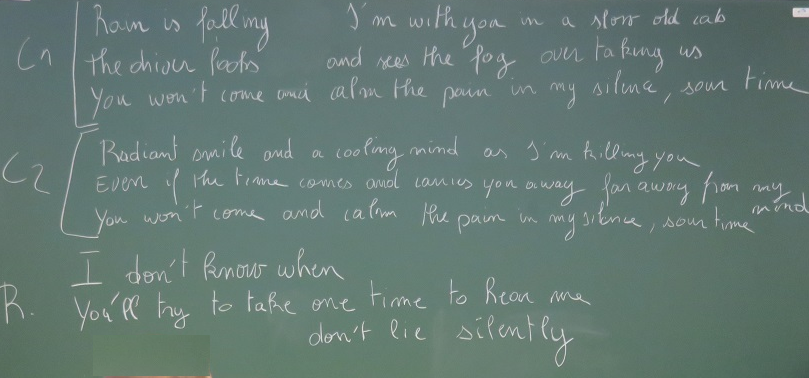 C1
Rain is falling I'm with you in a slow old cab
the driver looks and sees the fog over taking us
You won't come and calm the pain in my silence, sour time
C2
Radiant smile and a cooling mind as I'm killing you
Even if the time comes and carries you away far away from my mind
You won't come and calm the pain in my silence, sour time
R.
I don't know when
You'll try to take one time to hear me
don't lie silently